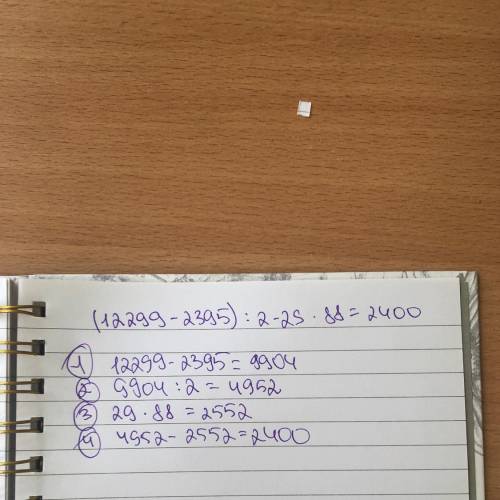 (12299-2395) : 2-29 · 88 = 2400
1 12299-2395 = 9904
2 9904 : 2 = 4952
3 29 · 88 = 2552
4 4952-2552 = 2400